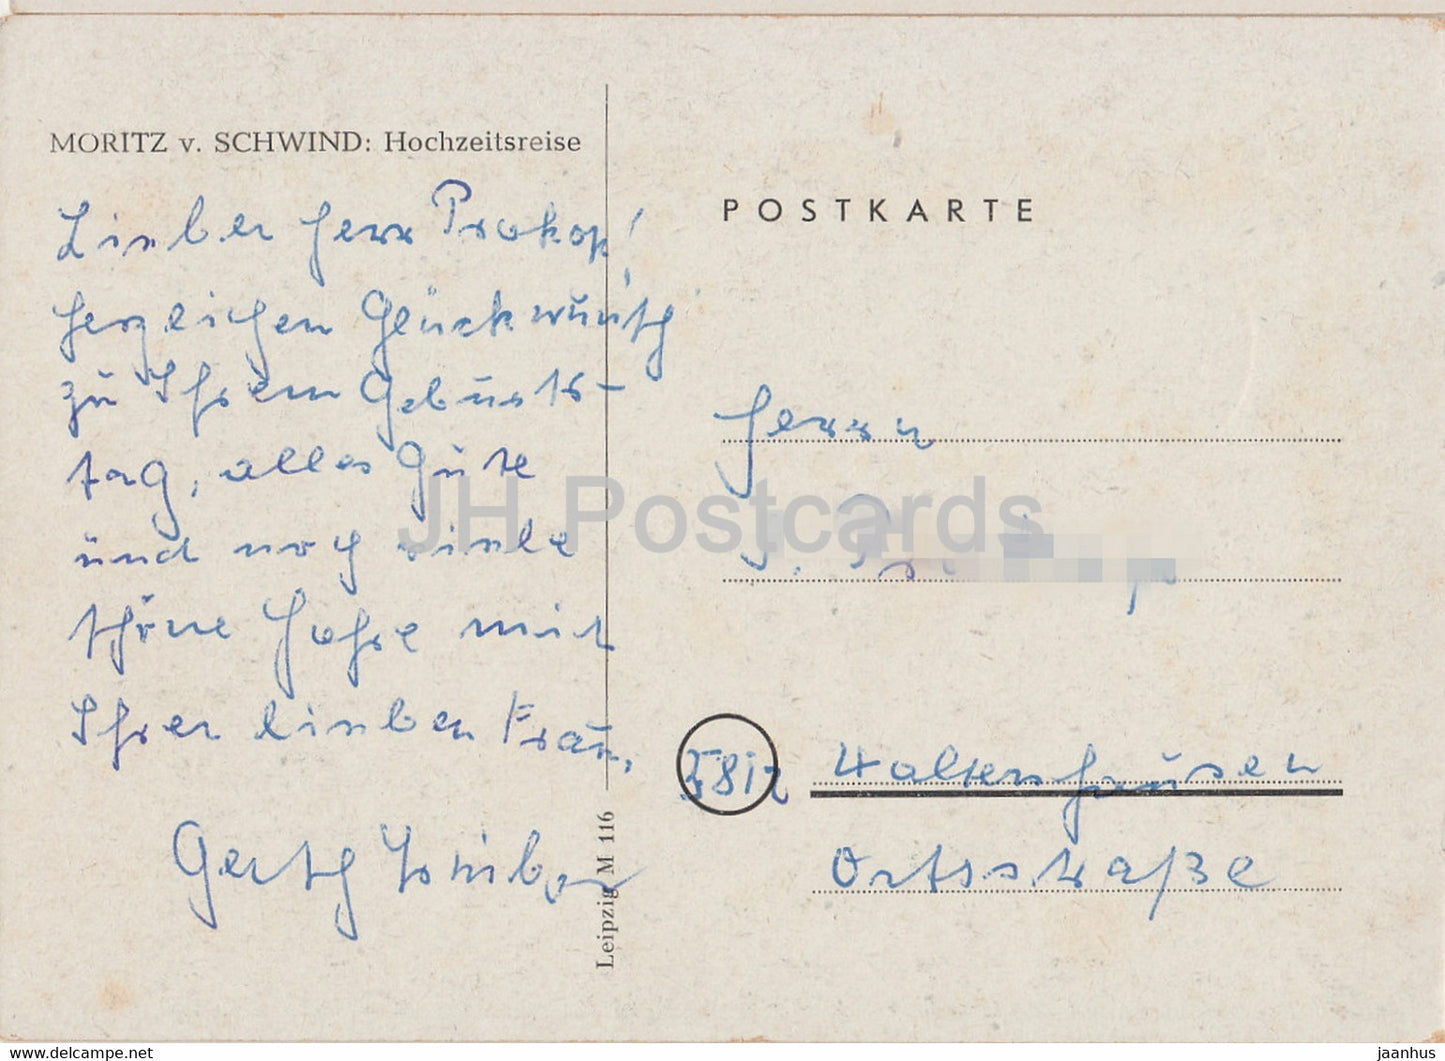 MORITZ v. SCHWIND: Hochzeitsreise
Lieber Herr Prokop!
Herzlichen Glückwunsch
zu Ihrem Geburts-
tag, alles Gute
und noch viele
schöne Jahre mit
Ihrer lieben Frau,
Gerth
Leipzig M 116
POSTKARTE
Herrn
5812 Waltershausen
Ortsstraße
JH Postcards
delcampe.net
jaanhus